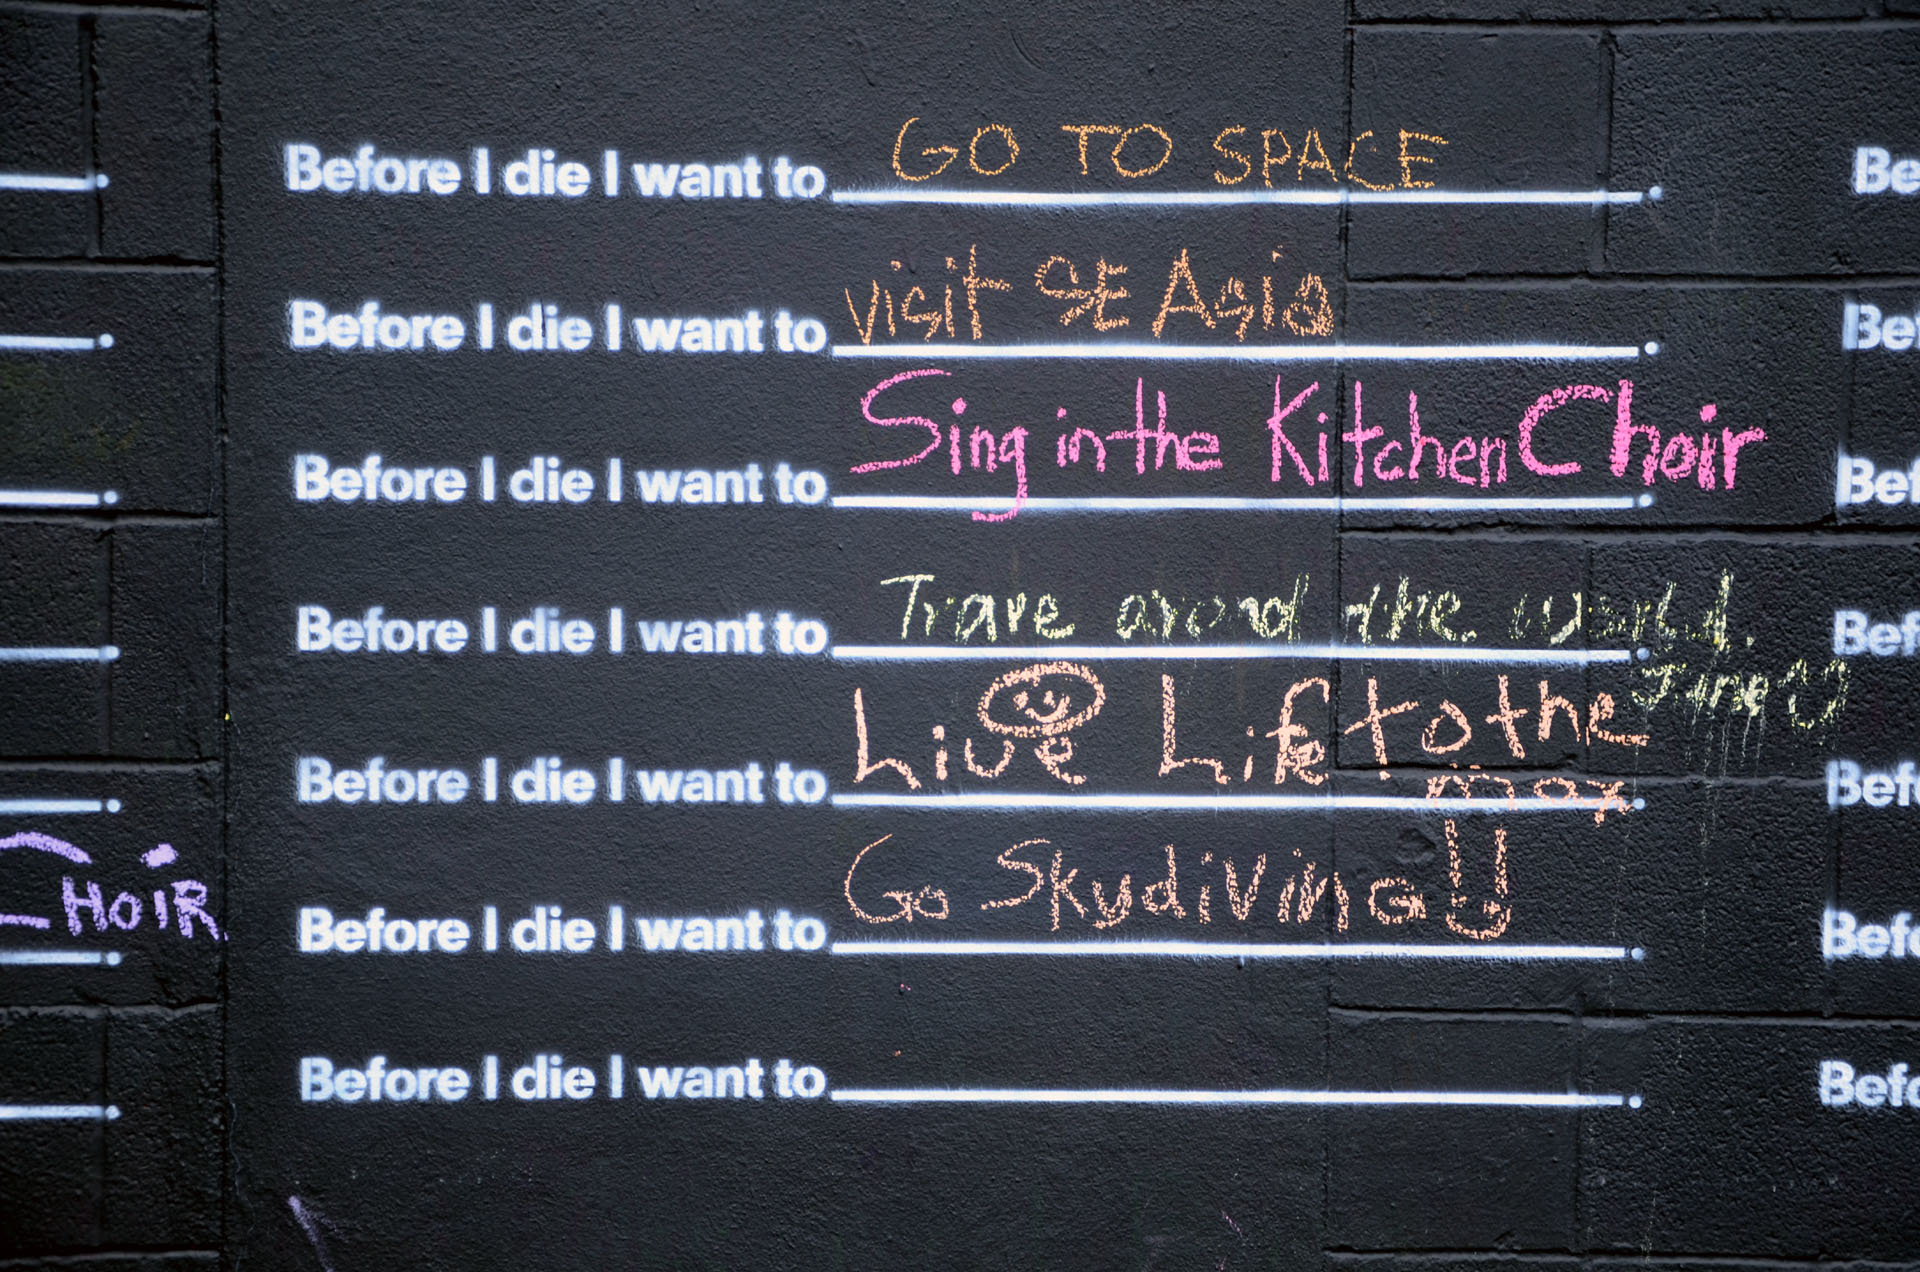 Before I die I want to GO TO SPACE.
Before I die I want to visit SE Asia.
Before I die I want to Sing in the Kitchen Choir.
Before I die I want to Trave arond the world.
Before I die I want to Live Life to the
max
Before I die I want to Go Skydiving.
Before I die I want to
CHOIR
Be
Bef
Bef
Bef
Befo
Befo
Befo